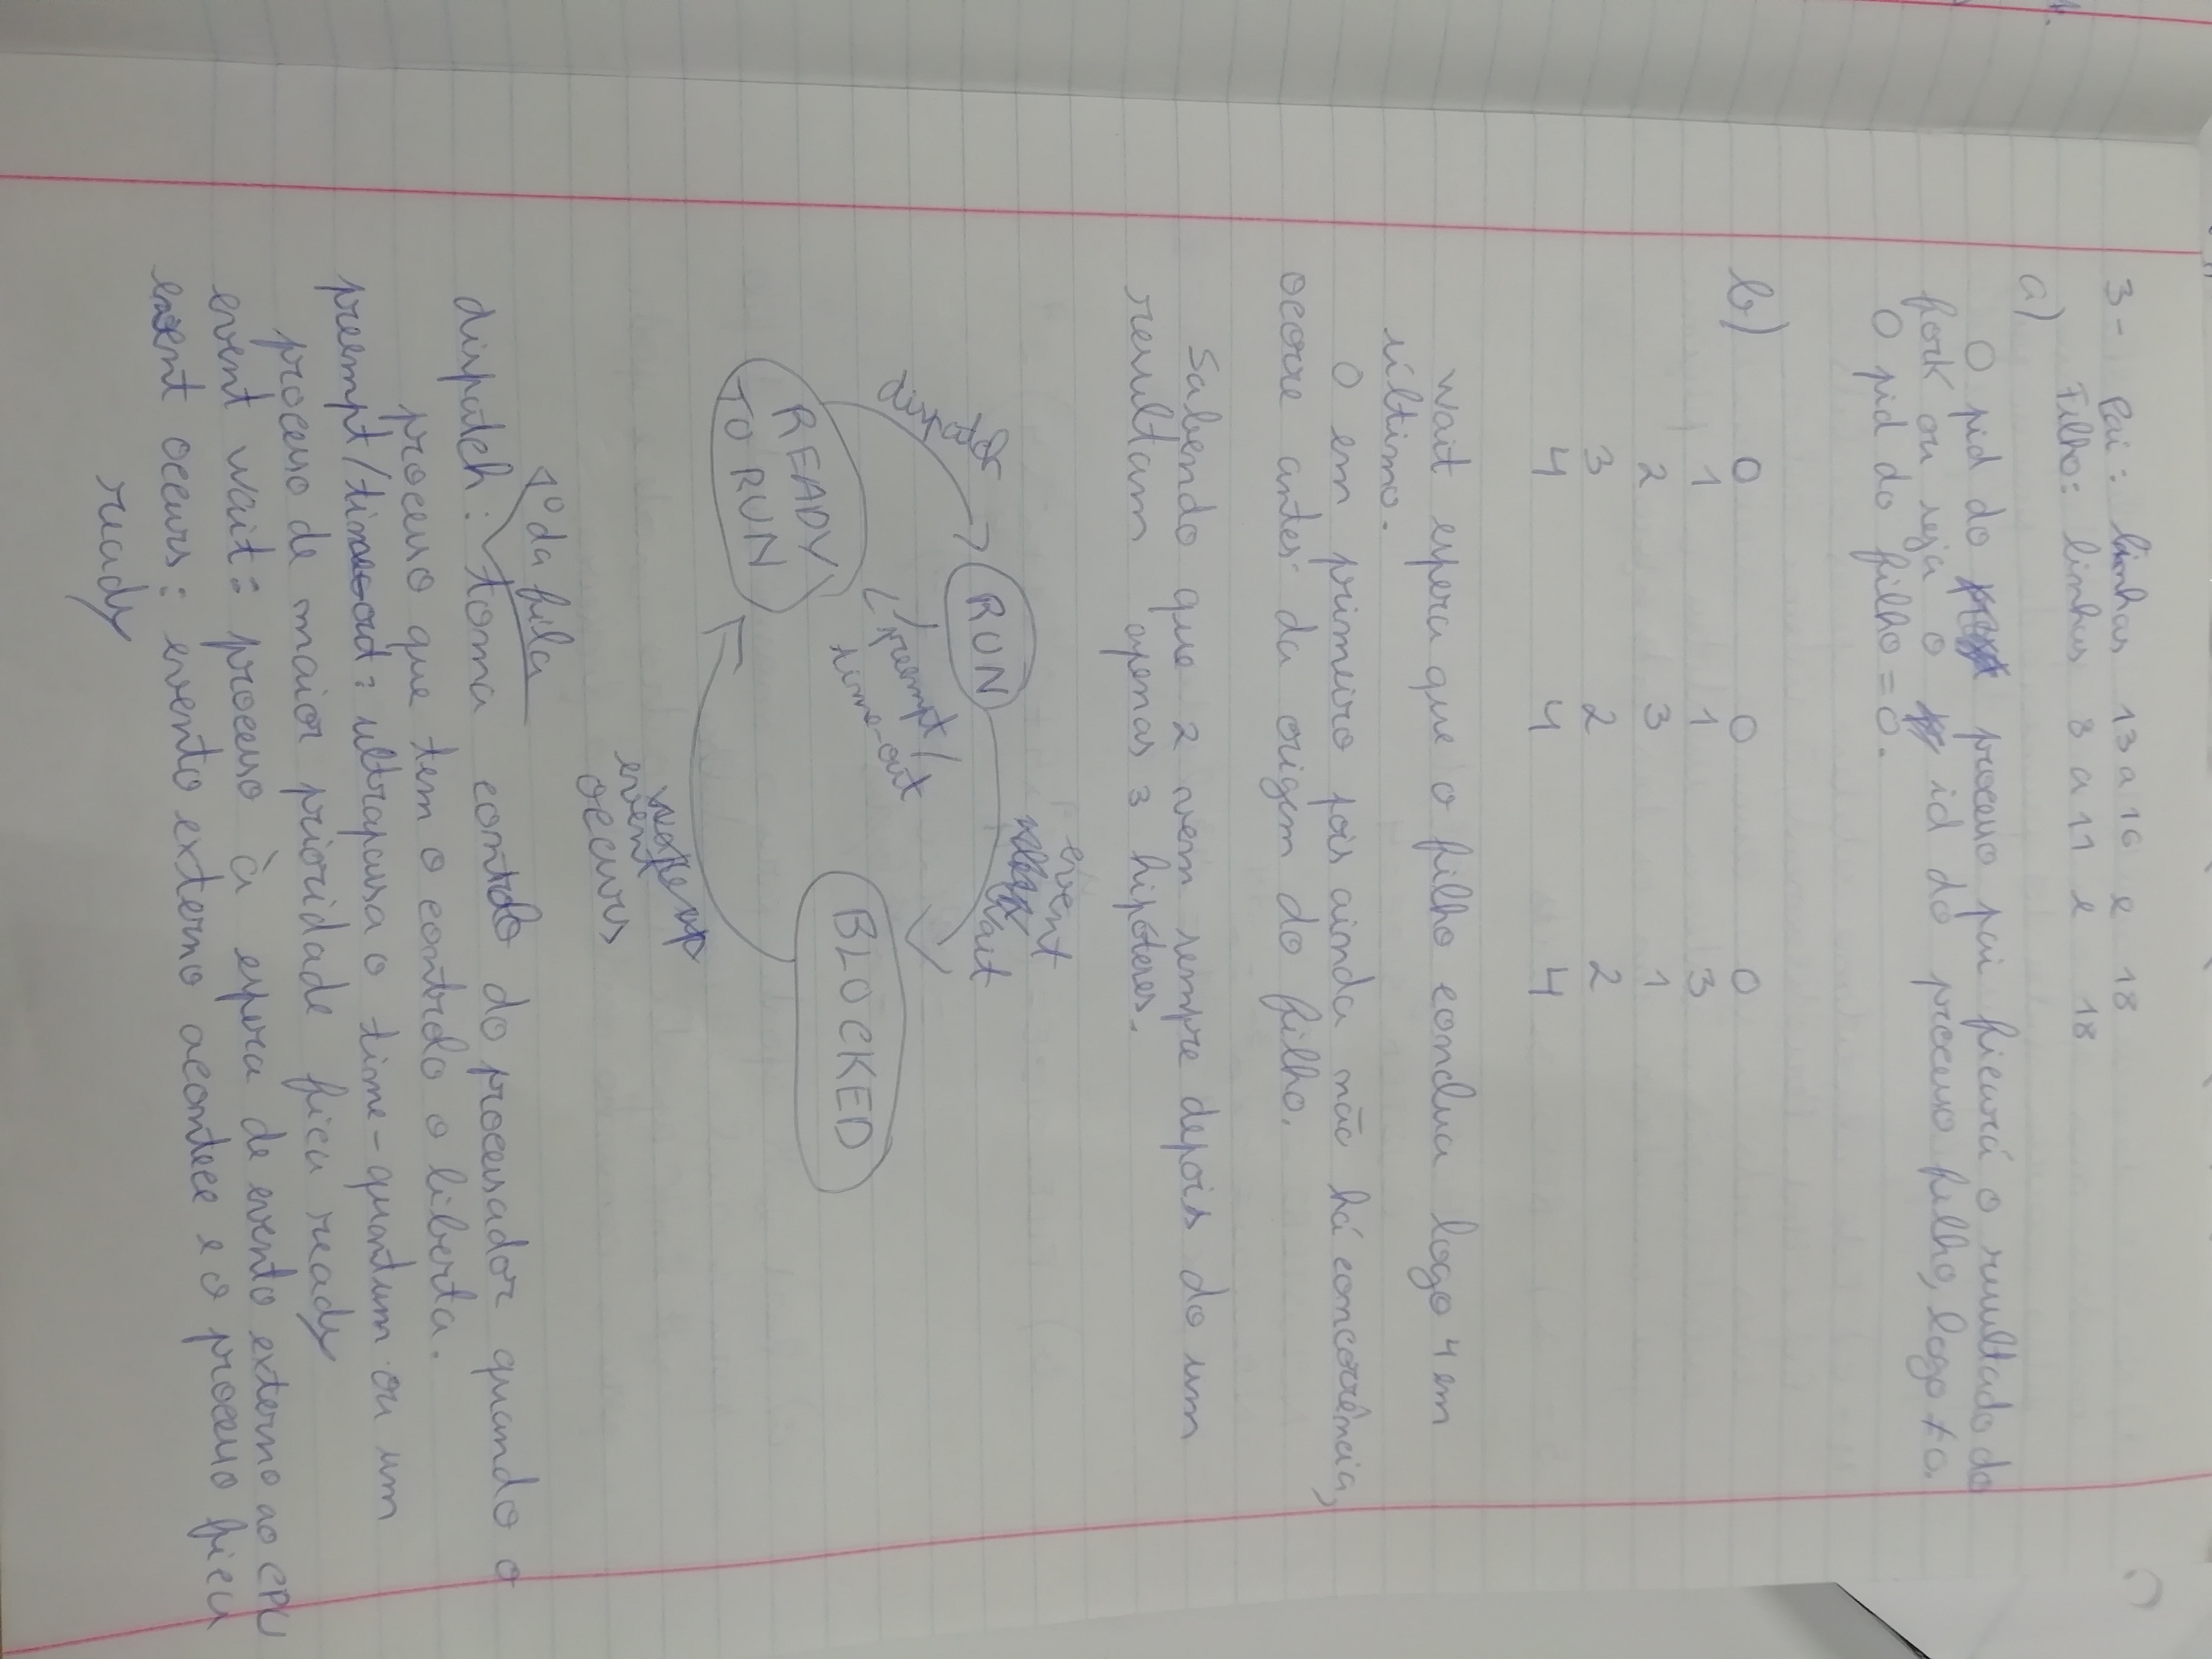 3- Pai: linhas 13 a 16 e 18
a) Filho: linhas 8 a 11 e 18
O pid do processo pai ficará o resultado do
fork ou seja o id do processo filho, logo ≠ 0.
O pid do filho = 0.
b) 0 0 0
1 1 3
2 3 1
3 2 2
4 4 4
wait espera que o filho conclua logo 4 em
último.
0 em primeiro pois ainda não há concorrência,
ocorre antes da origem do filho.
Sabendo que 2 vem sempre depois do um
resultam apenas 3 hipóteses.
event
wait
RUN
dispatch
preempt/
time-out
READY
TO RUN
BLOCKED
event
occurs
1º da fila
dispatch: toma controlo do processador quando o
processo que tem o controlo o liberta.
preempt/time-out: ultrapassa o time-quantum ou um
processo de maior prioridade fica ready
event wait: processo à espera de evento externo ao CPU
event occurs: evento externo acontece e o processo fica
ready